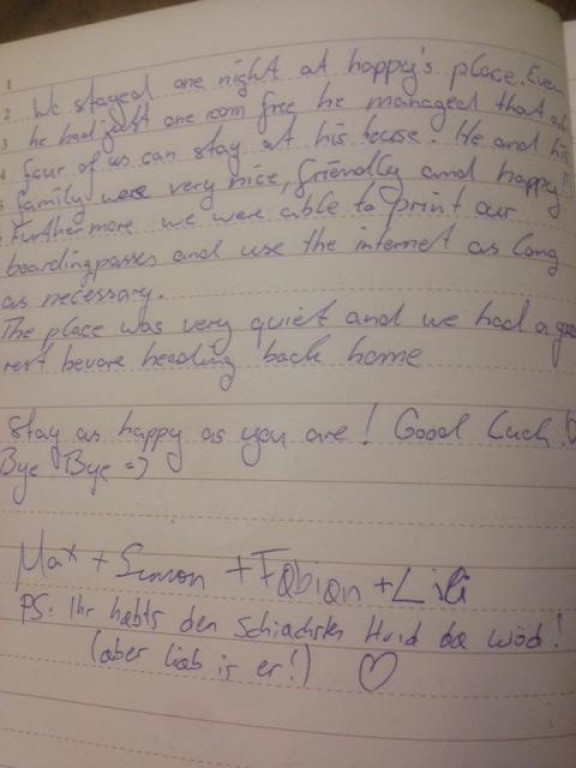 1
2 We stayed one night at happy's place. Even
3 he had just one room free he managed that all
4 four of us can stay at his house. He and his
5 family were very nice, friendly and happy!!
Furthermore we were able to print our
boardingpasses and use the internet as long
as necessary.
The place was very quiet and we had a good
rest bevore heading back home
Stay as happy as you are! Good Luck!
Bye Bye =)
Max + Simon + Fabian + Lili
PS. Ihr habts den Schiachsten Hund da wöd!
(aber liab is er!) ♡